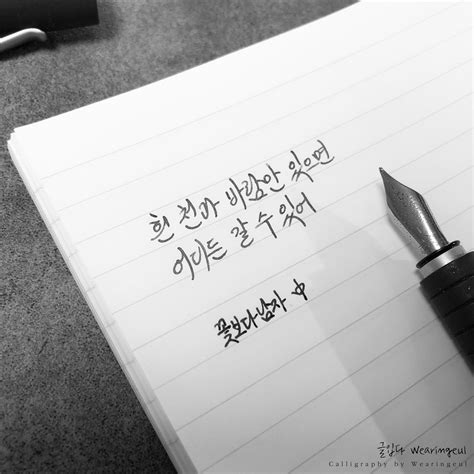 흰 천과 바람만 있으면
어디든 갈 수 있어
꽃보다남자 中
글입다 Wearingeul
Calligraphy by Wearingeul